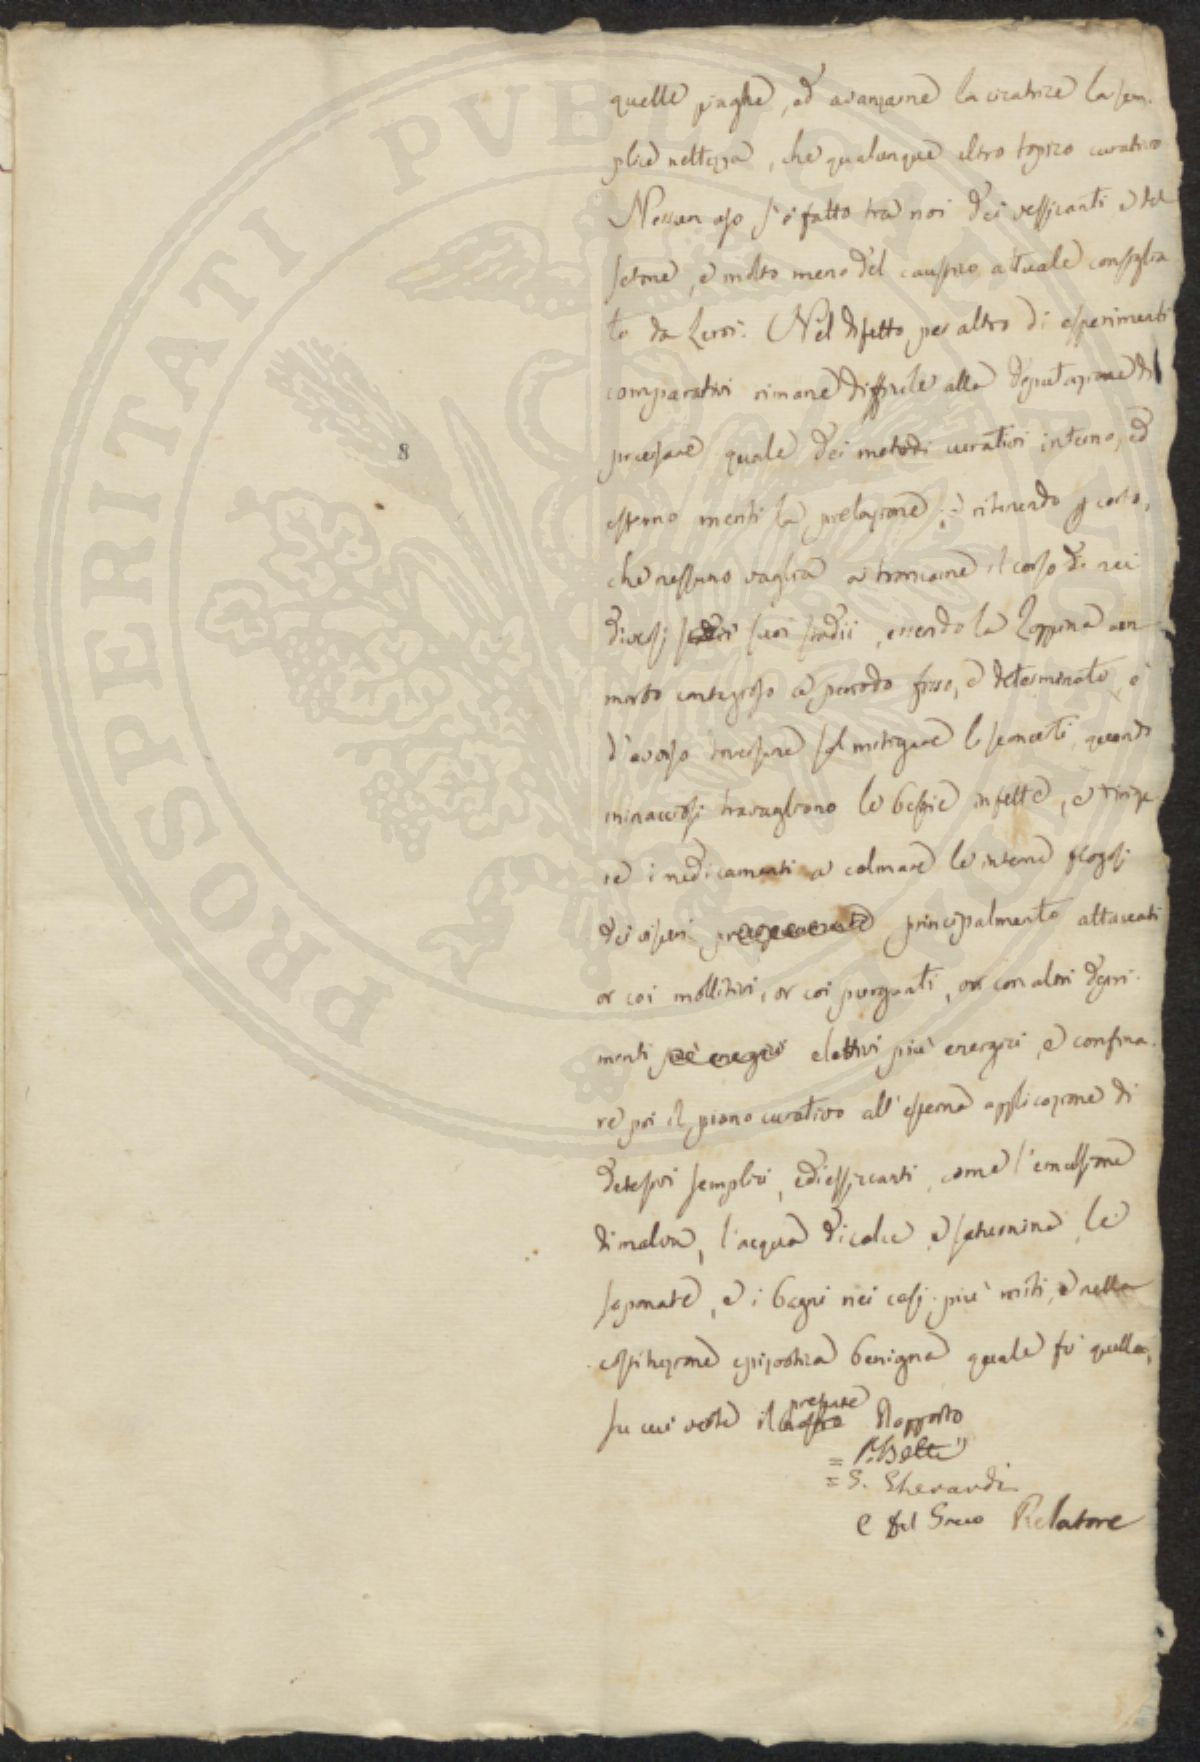 quelle piaghe, ed avanzarne la cicatrice la sem-
plice nettezza, che qualunque altro topico curativo
Nessun uso si è fatto tra noi dei vessicanti e del
setone, e molto meno del caustico attuale consiglia
to da Leroi. Nel difetto per altro di esperimenti
comparativi rimane difficile alla Deputazione di
precisare quale dei metodi curativi interno, ed
esterno meriti la prelazione; e ritenendo p certo,
che nessuno vaglia a troncarne il corso di nei
diversi suoi stadii, essendo la Zoppina un
morbo contagioso a periodo fisso, e determinato, è
d'avviso doversene sol mitigare li sconcerti, quando
minacciosi travagliono le bestie infette, e dirige
re i medicamenti a calmare le interne flogosi
dei visceri principalmente attaccati
or coi mollitivi, or coi purganti, or con altri
menti elettivi più energici, e confina-
re poi il piano curativo all'esterna applicazione di
detersivi semplici, ed essiccanti, come l'emulsione
di malva, l'acqua di calce, e saturnina, le
saponate, e i bagni nei casi più miti, e nella
costituzione epizootica benigna quale fù quella,
su cui verte il presente Rapporto
= P. Betti
= G. Gherardi
C del Greco Relatore
8
PROSPERITATI PVBLICAE